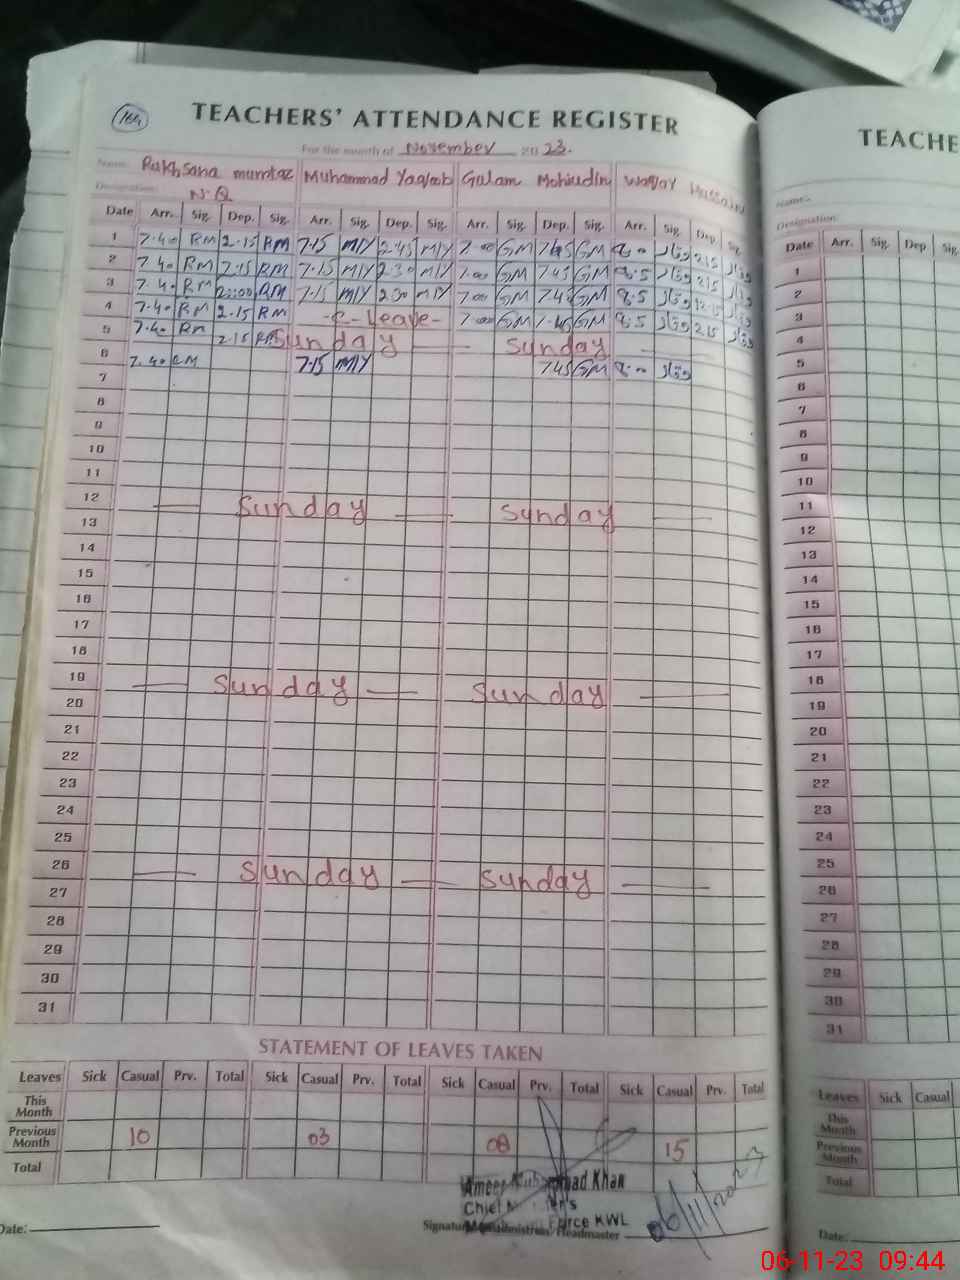 164
TEACHERS' ATTENDANCE REGISTER
For the month of November 2023.
Name: Rukhsana mumtaz Muhammad Yaqoob Gulam Mohiudin Waqar Hussain
Designation: N.Q
Date Arr. Sig. Dep. Sig. Arr. Sig. Dep. Sig. Arr. Sig. Dep. Sig. Arr. Sig. Dep. Sig.
1 7.40 RM 2.15 RM 7.15 M/Y 2.45 M/Y 7.00 GM 7.45 GM 8.00 وقار 2.15 وقار
2 7.40 RM 2.15 RM 7.15 M/Y 2.30 M/Y 7.00 GM 7.45 GM 8.5 وقار 2.15 وقار
3 7.40 RM RM 7.15 M/Y 2.30 M/Y 7.00 GM 7.45 GM 8.5 وقار 12.15 وقار
4 7.40 RM 2.15 RM -Leave- 7.00 GM 1.45 GM 8.5 وقار 2.15 وقار
5 7.40 RM 2.15 RM Sunday Sunday
6 7.40 RM 7.15 M/Y 7.45 GM 8.00 وقار
7
8
9
10
11
12 Sunday Sunday
13
14
15
16
17
18
19 Sunday Sunday
20
21
22
23
24
25
26 Sunday Sunday
27
28
29
30
31
STATEMENT OF LEAVES TAKEN
Leaves Sick Casual Prv. Total Sick Casual Prv. Total Sick Casual Prv. Total Sick Casual Prv. Total
This Month
Previous Month 10 03 08 15
Total
Ameer Muhammad Khan
Chief
Force KWL
Date: Signature Headmaster 06/11/2023
TEACHE
Name:
Designation:
Date Arr. Sig. Dep Sig.
1
2
3
4
5
6
7
8
9
10
11
12
13
14
15
16
17
18
19
20
21
22
23
24
25
26
27
28
29
30
31
Leaves Sick Casual
This Month
Previous Month
Total
Date:
06-11-23 09:44